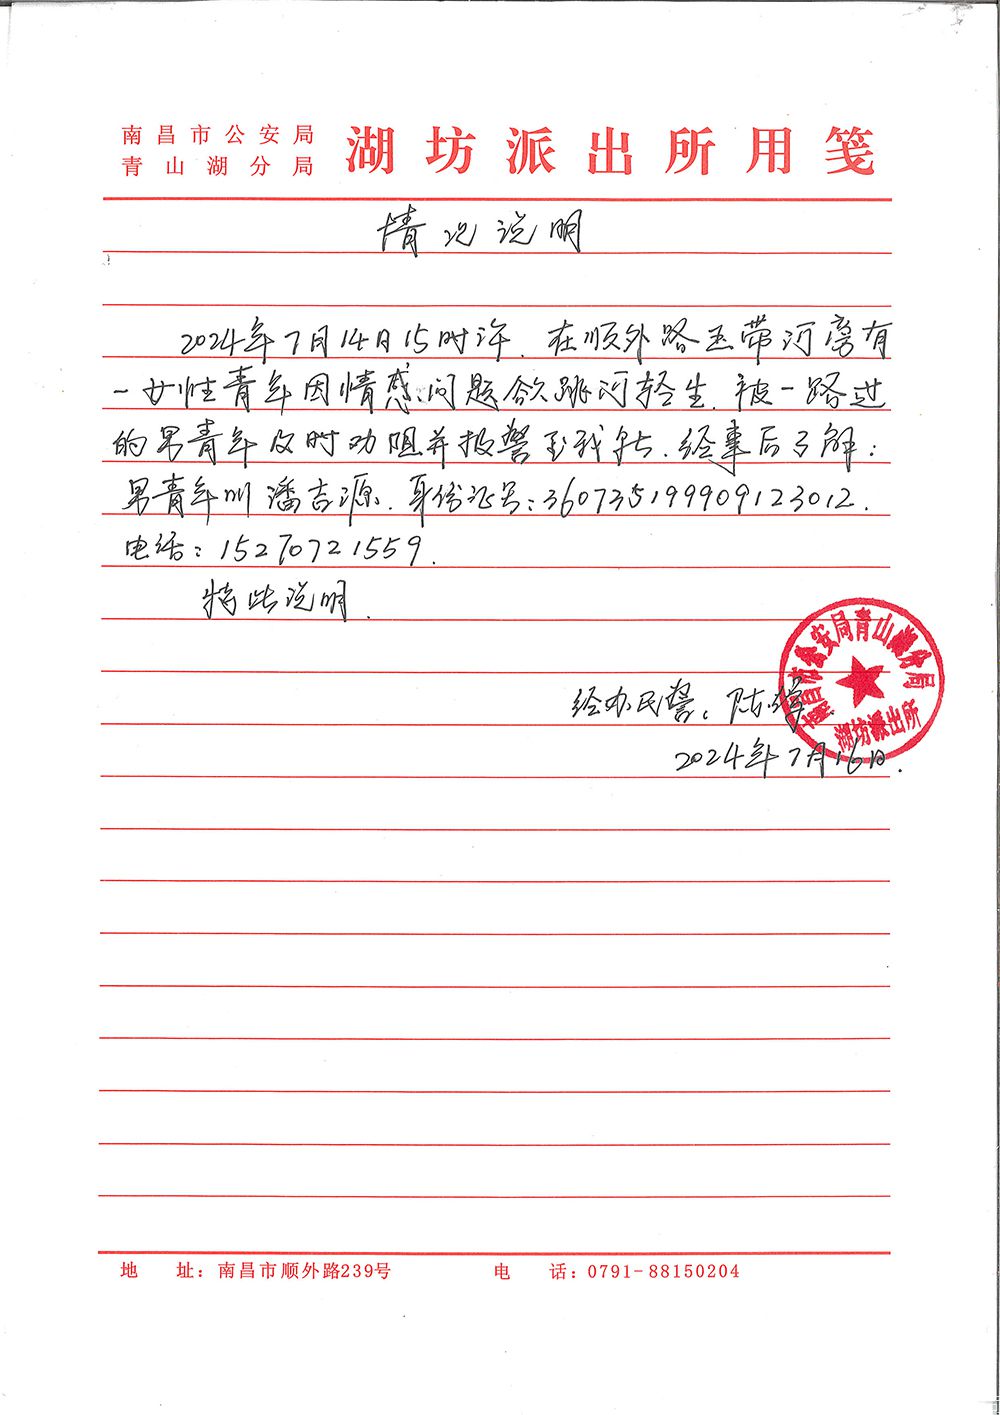 南昌市公安局
青山湖分局
湖坊派出所用笺
情况说明
2024年7月14日15时许，在顺外路玉带河旁有
一女性青年因情感问题欲跳河轻生，被一路过
的男青年及时劝阻并报警至我所．经事后了解：
男青年叫潘吉源．身份证号：360735199909123012．
电话：15270721559．
特此说明．
经办民警：陈
2024年7月16日．
南昌市公安局青山湖分局
湖坊派出所
地 址：南昌市顺外路239号 电 话：0791-88150204